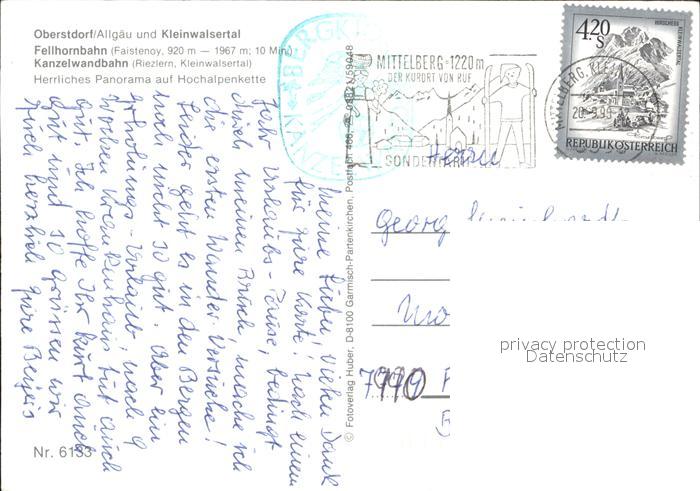 Oberstdorf/Allgäu und Kleinwalsertal
Fellhornbahn (Faistenoy, 920 m — 1967 m; 10 Min.)
Kanzelwandbahn (Riezlern, Kleinwalsertal)
Herrliches Panorama auf Hochalpenkette
Meine Lieben! Vielen Dank
für Eure Karte! Nach einem
Jahr Urlaubs-Pause, bedingt
durch meinen Bruch, mache ich
die ersten Wander-Versuche!
Leider geht es in den Bergen
noch nicht so gut. Aber ein
Erholungs-Urlaub nach 9
Wochen Krankenhaus tut auch
gut. Ich hoffe Ihr kurt auch
gut und so grüssen wir
Euch herzlich Eure
Nr. 6133
© Fotoverlag Huber, D-8100 Garmisch-Partenkirchen, Postfach 466,
BERGK
KANZE
MITTELBERG·1220m
DER KURORT VON RUF
SONDERTARIF
MITTELBERG, KL
20.-9.90
4.20
S
HIRSCHEGG
KLEINWALSERTAL
REPUBLIK ÖSTERREICH
Herrn
Georg
privacy protection
Datenschutz